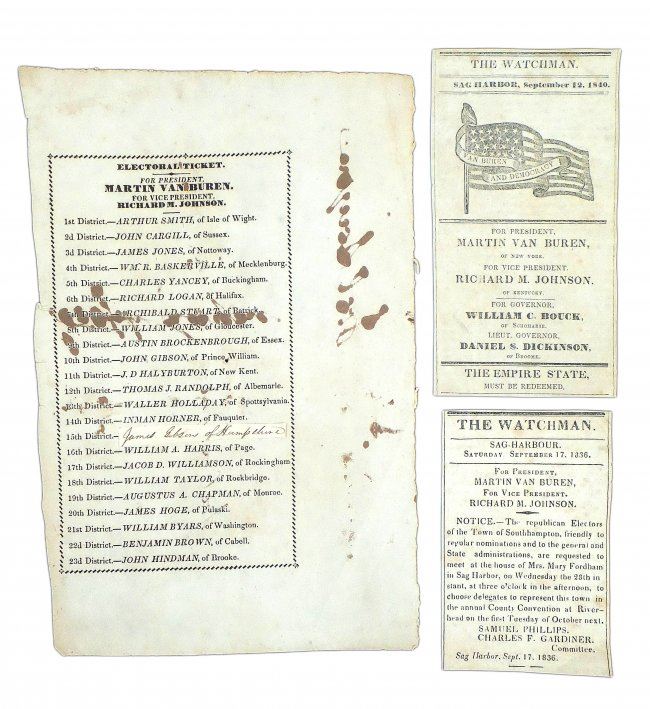 ELECTORAL TICKET.
FOR PRESIDENT,
MARTIN VAN BUREN.
FOR VICE PRESIDENT,
RICHARD M. JOHNSON.
1st District.—ARTHUR SMITH, of Isle of Wight.
2d District.—JOHN CARGILL, of Sussex.
3d District.—JAMES JONES, of Nottoway.
4th District.—WM. R. BASKERVILLE, of Mecklenburg.
5th District.—CHARLES YANCEY, of Buckingham.
6th District.—RICHARD LOGAN, of Halifax.
District.—ARCHIBALD STUART, of Patrick.
8th District.—WILLIAM JONES, of Gloucester.
9th District.—AUSTIN BROCKENBROUGH, of Essex.
10th District.—JOHN GIBSON, of Prince William.
11th District.—J. D HALYBURTON, of New Kent.
12th District.—THOMAS J. RANDOLPH, of Albemarle.
13th District.—WALLER HOLLADAY, of Spottsylvania.
14th District.—INMAN HORNER, of Fauquier.
15th District.—James Gibson of Hampshire
16th District.—WILLIAM A. HARRIS, of Page.
17th District.—JACOB D. WILLIAMSON, of Rockingham.
18th District.—WILLIAM TAYLOR, of Rockbridge.
19th District.—AUGUSTUS A. CHAPMAN, of Monroe.
20th District.—JAMES HOGE, of Pulaski.
21st District.—WILLIAM BYARS, of Washington.
22d District.—BENJAMIN BROWN, of Cabell.
23d District.—JOHN HINDMAN, of Brooke.
THE WATCHMAN.
SAG HARBOR, September 12, 1840.
VAN BUREN
AND DEMOCRACY
FOR PRESIDENT,
MARTIN VAN BUREN,
OF NEW YORK.
FOR VICE PRESIDENT.
RICHARD M. JOHNSON.
OF KENTUCKY.
FOR GOVERNOR,
WILLIAM C. BOUCK,
OF SCHOHARIE.
LIEUT. GOVERNOR,
DANIEL S. DICKINSON,
OF BROOME.
THE EMPIRE STATE,
MUST BE REDEEMED.
THE WATCHMAN.
SAG-HARBOUR.
SATURDAY SEPTEMBER 17. 1836.
FOR PRESIDENT,
MARTIN VAN BUREN,
FOR VICE PRESIDENT.
RICHARD M. JOHNSON.
NOTICE.—The republican Electors
of the Town of Southhampton, friendly to
regular nominations and to the general and
State administrations, are requested to
meet at the house of Mrs. Mary Fordham
in Sag Harbor, on Wednesday the 28th in
stant, at three o'clock in the afternoon, to
choose delegates to represent this town in
the annual County Convention at River-
head on the first Tuesday of October next.
SAMUEL PHILLIPS.
CHARLES F. GARDINER.
Committee.
Sag Harbor, Sept. 17. 1836.